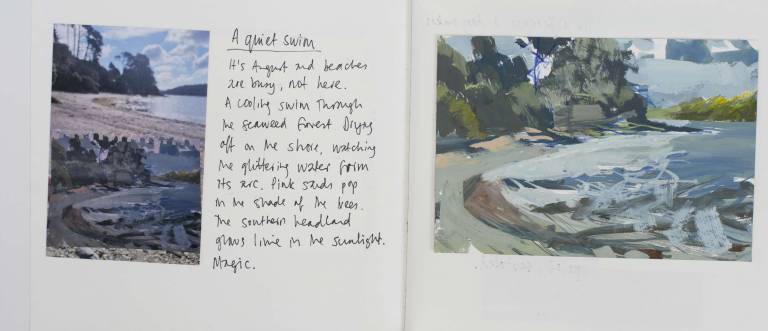 A quiet swim
It's August and beaches
are busy, not here.
A cooling swim through
the seaweed forest. Drying
off on the shore, watching
the glittering water form
its arc. Pink sands pop
in the shade of the trees.
The southern headland
glows lime in the sunlight.
Magic.